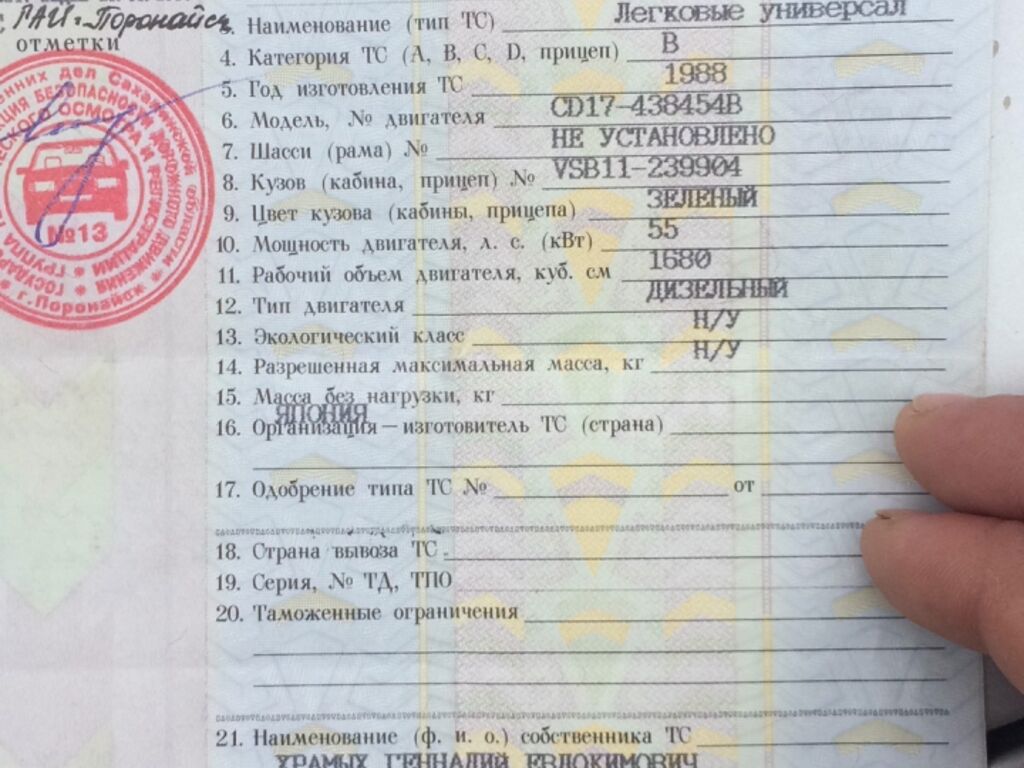 ГАИ г. Поронайск
отметки
3. Наименование (тип ТС) Легковые универсал
4. Категория ТС (А, В, С, D, прицеп) В
5. Год изготовления ТС 1988
6. Модель, № двигателя CD17-438454B
7. Шасси (рама) № НЕ УСТАНОВЛЕНО
8. Кузов (кабина, прицеп) № VSB11-239904
9. Цвет кузова (кабины, прицепа) ЗЕЛЕНЫЙ
10. Мощность двигателя, л. с. (кВт) 55
11. Рабочий объем двигателя, куб. см 1680
12. Тип двигателя ДИЗЕЛЬНЫЙ
13. Экологический класс Н/У
14. Разрешенная максимальная масса, кг Н/У
15. Масса без нагрузки, кг
ЯПОНИЯ
16. Организация – изготовитель ТС (страна)
17. Одобрение типа ТС № от
18. Страна вывоза ТС
19. Серия, № ТД, ТПО
20. Таможенные ограничения
21. Наименование (ф. и. о.) собственника ТС
ХРАМЫХ ГЕННАДИЙ ЕВДОКИМОВИЧ
№13
г. Поронайск